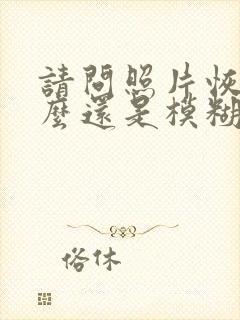 請問照片恢
麼還是模糊
俗休